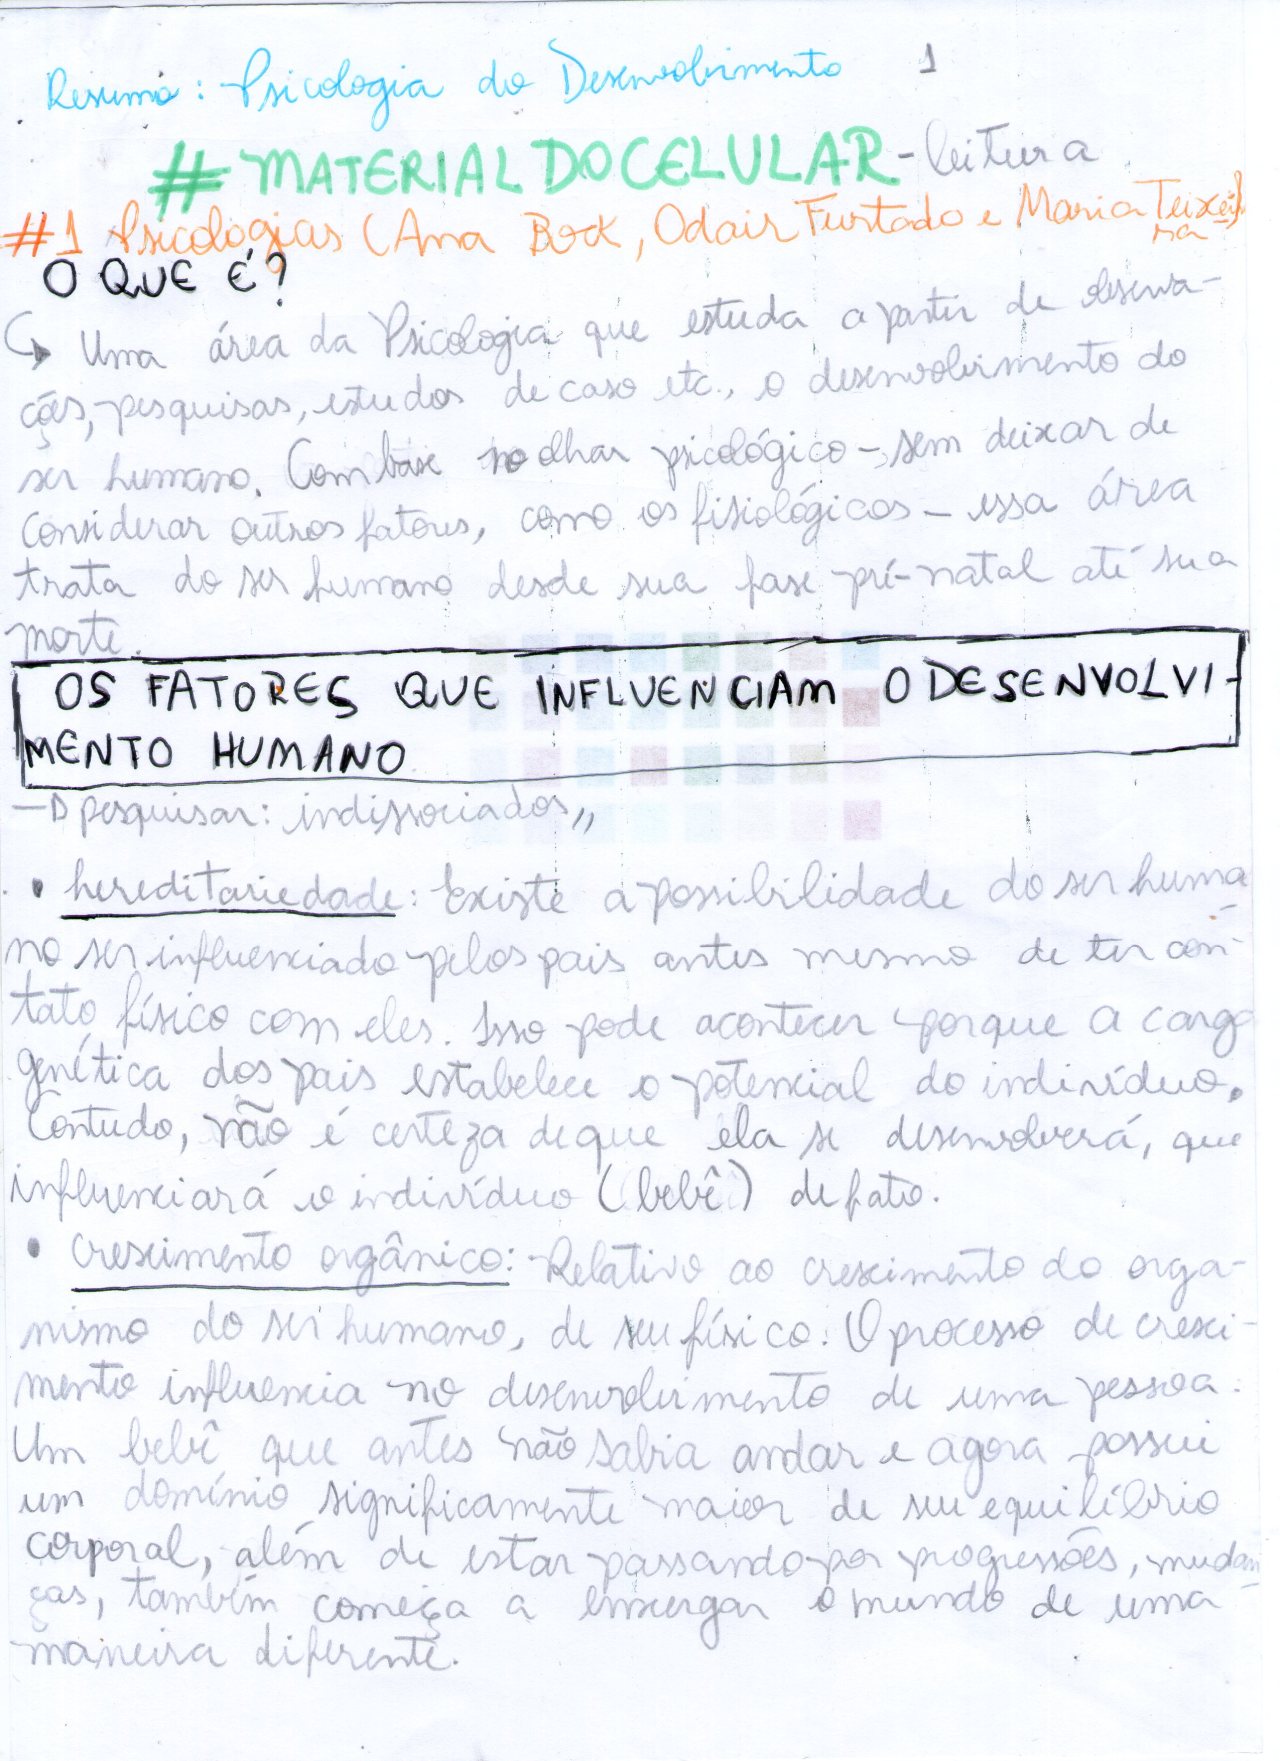 Resumo: Psicologia do Desenvolvimento 1
# MATERIAL DO CELULAR - leitura
#1 Psicologias (Ana Bock, Odair Furtado e Maria Teixei-
ra)
O QUE É?
↳ Uma área da Psicologia que estuda a partir de observa-
ções, pesquisas, estudos de caso etc., o desenvolvimento do
ser humano. Com base no olhar psicológico - sem deixar de
considerar outros fatores, como os fisiológicos - essa área
trata do ser humano desde sua fase pré-natal até sua
morte.
OS FATORES QUE INFLUENCIAM O DESENVOLVI-
MENTO HUMANO
→ pesquisar: indissociados,,
• hereditariedade: Existe a possibilidade do ser huma-
no ser influenciado pelos pais antes mesmo de ter con-
tato físico com eles. Isso pode acontecer porque a carga
genética dos pais estabelece o potencial do indivíduo.
Contudo, não é certeza de que ela se desenvolverá, que
influenciará o indivíduo (bebê) de fato.
• crescimento orgânico: Relativo ao crescimento do orga-
nismo do ser humano, de seu físico. O processo de cresci-
mento influencia no desenvolvimento de uma pessoa.
Um bebê que antes não sabia andar e agora possui
um domínio significamente maior de seu equilíbrio
corporal, além de estar passando por progressões, mudan-
ças, também começa a enxergar o mundo de uma
maneira diferente.